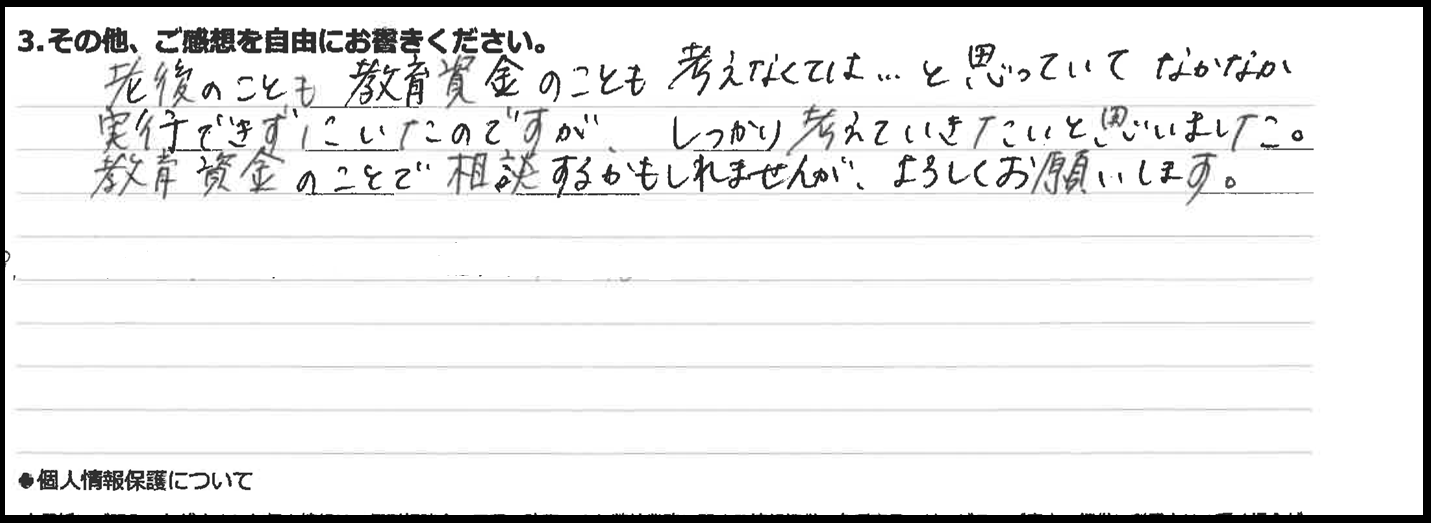 3.その他、ご感想を自由にお書きください。
老後のことも 教育資金のことも 考えなくては…と思っていて なかなか
実行できずにいたのですが、しっかり考えていきたいと思いました。
教育資金のことで 相談するかもしれませんが、よろしくお願いします。
●個人情報保護について